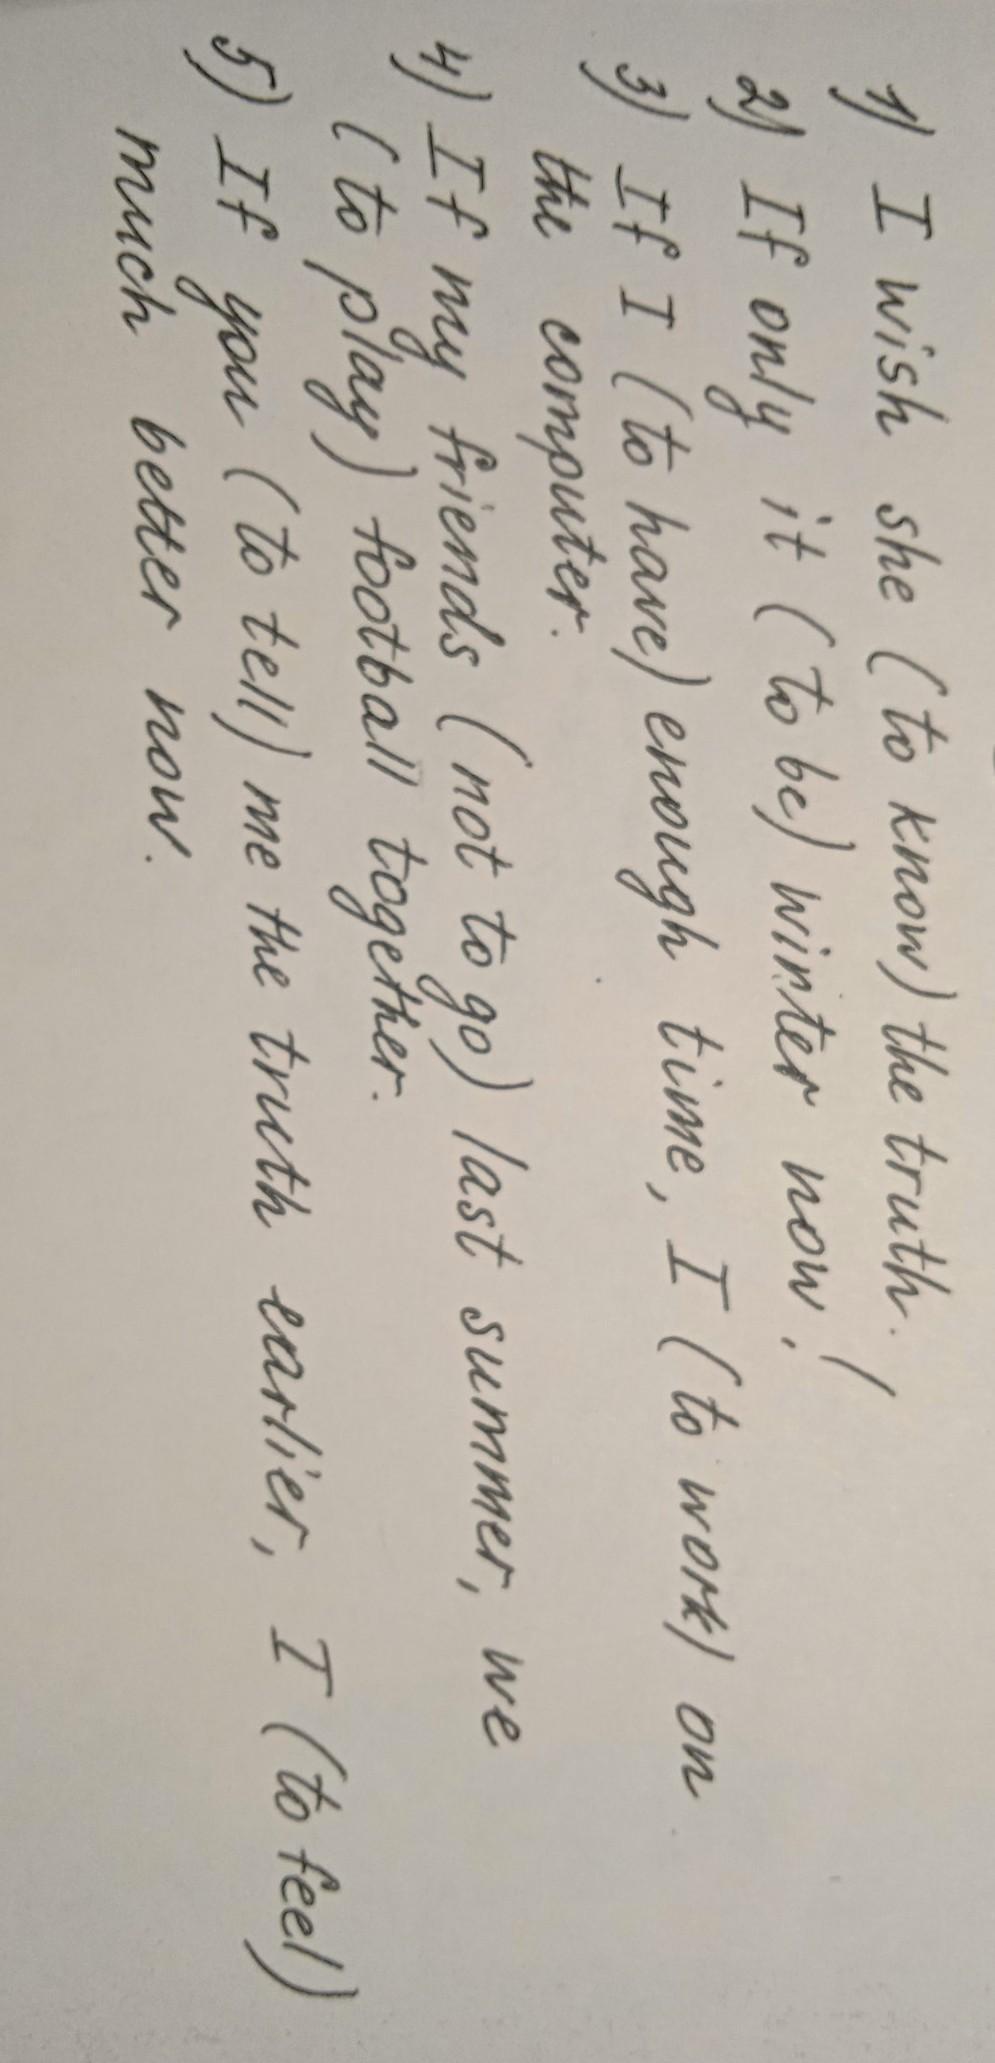 1) I wish she (to know) the truth.
2) If only it (to be) winter now!
3) If I (to have) enough time, I (to work) on
the computer.
4) If my friends (not to go) last summer, we
(to play) football together.
5) If you (to tell) me the truth earlier, I (to feel)
much better now.